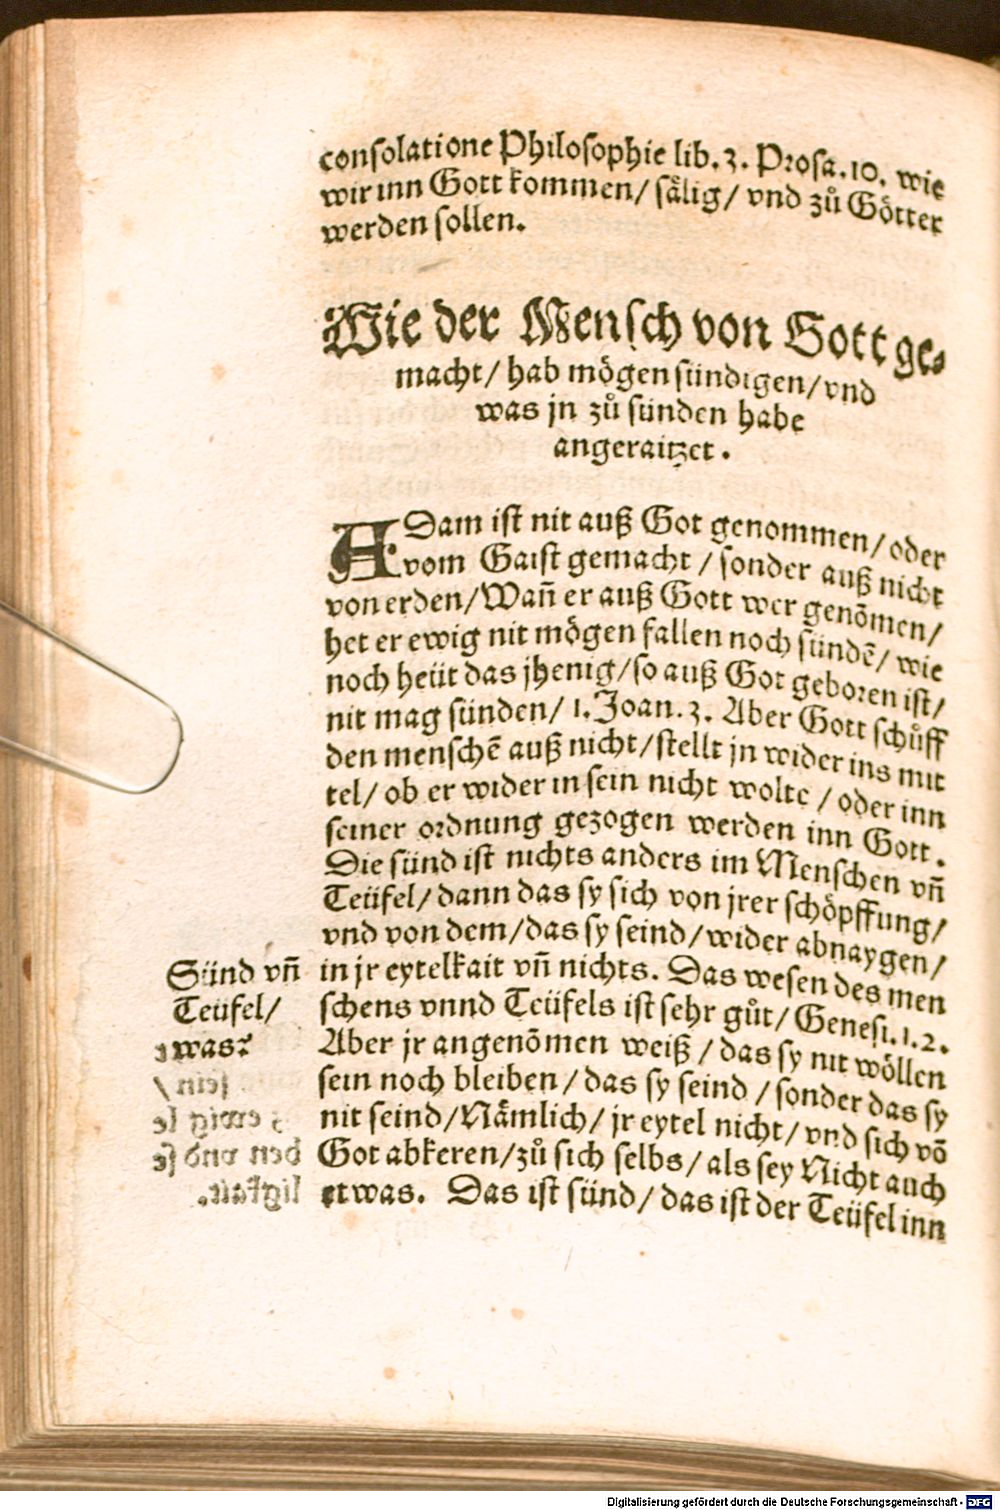 consolatione Philosophie lib. 3. Prosa. 10. wie
wir inn Gott kommen/ sälig/ vnd zů Götter
werden sollen.
Wie der Mensch von Gott ge-
macht/ hab mögen sündigen/ vnd
was jn zů sünden habe
angeraitzet.
ADam ist nit auß Got genommen/ oder
vom Gaist gemacht/ sonder auß nicht
von erden/ Wañ er auß Gott wer genōmen/
het er ewig nit mögen fallen noch sündē/ wie
noch heüt das jhenig/ so auß Got geboren ist/
nit mag sünden/ 1. Joan. 3. Aber Gott schůff
den menschē auß nicht/ stellt jn wider ins mit
tel/ ob er wider in sein nicht wolte/ oder inn
seiner ordnung gezogen werden inn Gott.
Die sünd ist nichts anders im Menschen vñ
Teüfel/ dann das sy sich von jrer schöpffung/
vnd von dem/ das sy seind/ wider abnaygen/
in jr eytelkait vñ nichts. Das wesen des men
schens vnnd Teüfels ist sehr gůt/ Genesi. 1. 2.
Aber jr angenōmen weiß/ das sy nit wöllen
sein noch bleiben/ das sy seind/ sonder das sy
nit seind/ Nämlich/ jr eytel nicht/ vnd sich vō
Got abkeren/ zů sich selbs/ als sey Nicht auch
etwas. Das ist sünd/ das ist der Teüfel inn
Sünd vñ
Teüfel/
was?
Digitalisierung gefördert durch die Deutsche Forschungsgemeinschaft - DFG